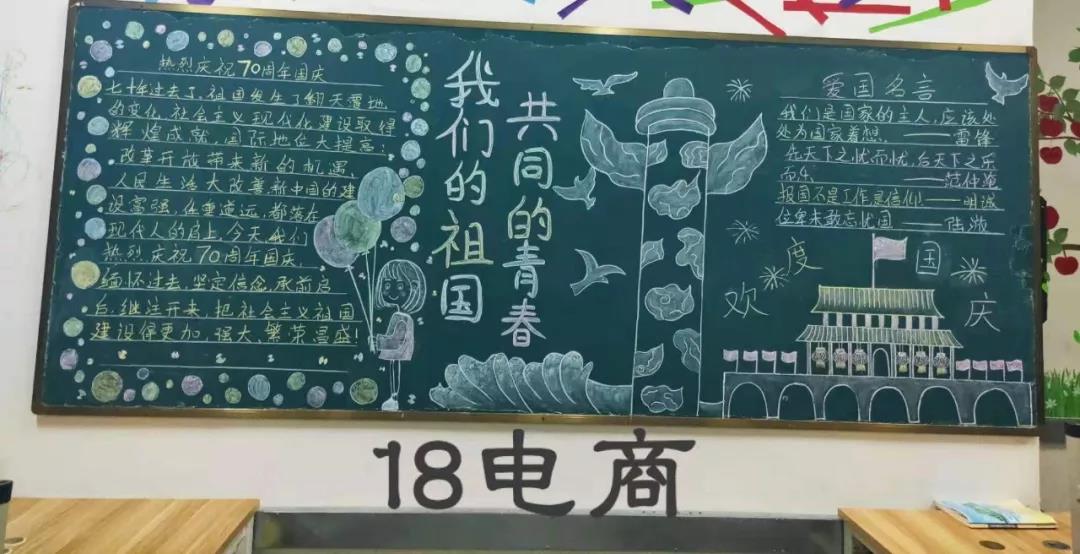 热烈庆祝70周年国庆
七十年过去了,祖国发生了翻天覆地
的变化,社会主义现代化建设取得
辉煌成就,国际地位大提高;
改革开放带来新的机遇,
人民生活大改善新中国的建
设高强,任重道远,都落在
现代人的肩上,今天,我们
热烈庆祝70周年国庆
缅怀过去,坚定信念,承前启
后,继往开来,把社会主义祖国
建设得更加,强大,繁荣昌盛!
我们的祖国
共同的青春
爱国名言
我们是国家的主人,应该处
处为国家着想.——雷锋
先天下之忧而忧,后天下之乐
而 ——范仲淹
报国不是工作是信仰——明诚
位卑未敢忘忧国——陆游
欢度国庆
18电商